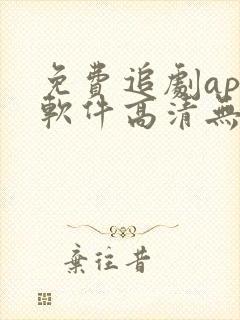 免費追劇ap
軟件高清無
棄往昔